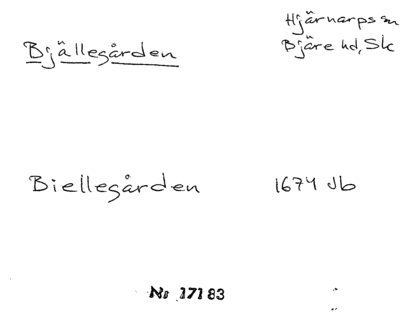 Hjärnarps sn
Bjällegården
Bjäre hd, Sk
Biellegården 1674 Jb
No 17183